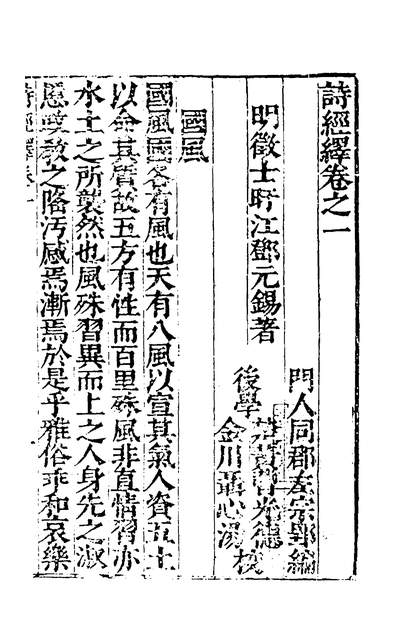 詩經繹卷之一
明徵士盱江鄧元錫著
門人同郡左宗郢編
後學
金川聶心湯校
國風
國風國各有風也天有八風以宣其氣人資五土
以全其質故五方有性而百里殊風非直情習亦
水土之所襲然也風殊習異而上之人身先之淑
慝與教之隆汚感焉漸焉於是乎雅俗乖和哀樂
詩經繹卷一